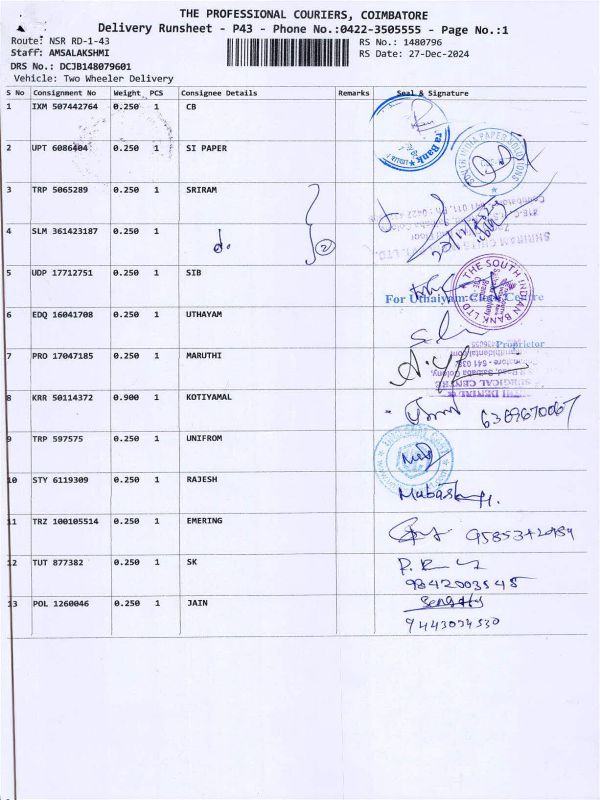 THE PROFESSIONAL COURIERS, COIMBATORE
Delivery Runsheet - P43 - Phone No.:0422-3505555 - Page No.:1
Route: NSR RD-1-43
RS No.: 1480796
Staff: AMSALAKSHMI
RS Date: 27-Dec-2024
DRS No.: DCJB148079601
Vehicle: Two Wheeler Delivery
S No Consignment No Weight PCS Consignee Details Remarks Seal & Signature
1 IXM 507442764 0.250 1 CB
2 UPT 6086404 0.250 1 SI PAPER
3 TRP 5065289 0.250 1 SRIRAM
4 SLM 361423187 0.250 1
d. 2
5 UDP 17712751 0.250 1 SIB
THE SOUTH INDIAN BANK LTD
For Uthaiyam Clock Centre
6 EDQ 16041708 0.250 1 UTHAYAM
Proprietor
7 PRO 17047185 0.250 1 MARUTHI
SURGICAL CENTRE
8 KRR 50114372 0.900 1 KOTIYAMAL
6369670067
9 TRP 597575 0.250 1 UNIFROM
10 STY 6119309 0.250 1 RAJESH
11 TRZ 100105514 0.250 1 EMERING
12 TUT 877382 0.250 1 SK
9842003545
13 POL 1260046 0.250 1 JAIN